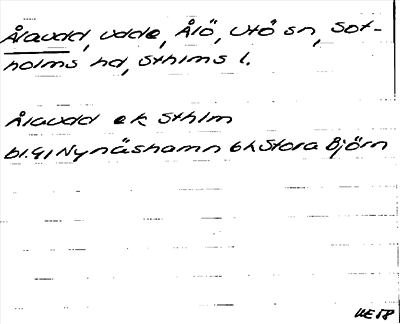 Ålaudd, udde, Ålö, Utö sn, Sot-
holms hd, Sthlms l.
Ålaudd ek Sthlm
bl.41 Nynäshamn bk Stora Björn
UE58